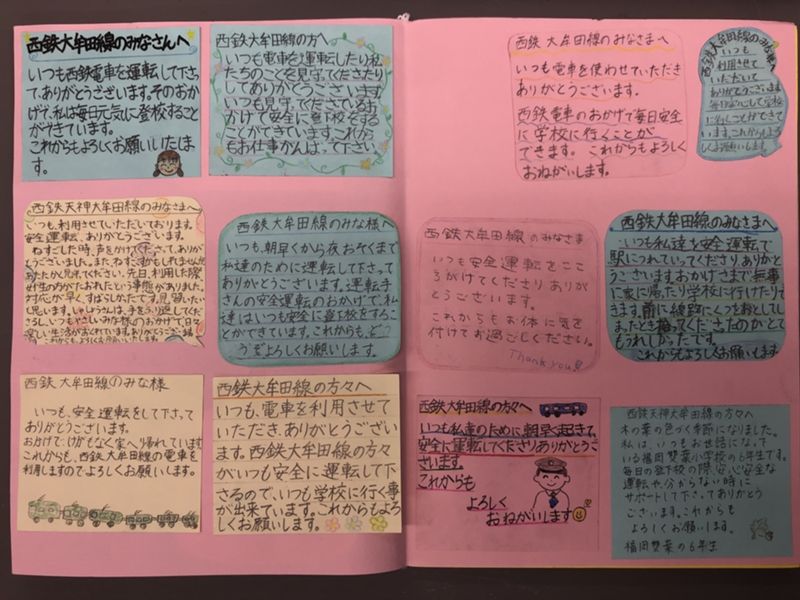 西鉄大牟田線のみなさんへ
いつも西鉄電車を運転して下さっ
て、ありがとうございます。そのおか
げで、私は毎日元気に登校すること
ができています。
これからもよろしくお願いいたしま
す。
西鉄大牟田線の方へ
いつも電車を運転したり私
たちのことを見守ってくださったり
してありがとうございます。
いつも見守ってくださっているお
かげで安全に登下校をする
ことができています。これから
もお仕事がんばって下さい。
西鉄天神大牟田線のみなさんへ
いつも、利用させていただいております。
安全運転、ありがとうございます。
ねすごした時、声をかけて下さって、ありが
とうございました。また、ねすごすかもしれませんが
あたたかく見守ってください。先日、利用した際
女性の方がたおれたという事態がありました。
対応が早く、すばらしかったです。見習いたい
と思います。しゃしょうさんは、手をふり返してくだ
さるし、いつもやさしいみな様のおかげで日々
楽しい生活が送れています。ありがとうございます。
これからもよろしくお願いします。
西鉄大牟田線のみな様へ
いつも、朝早くから夜おそくまで
私達のために運転して下さって
ありがとうございます。運転手
さんの安全運転のおかげで、私
達はいつも安全に登下校をするこ
とができています。これからも、ど
うぞよろしくお願いします。
西鉄大牟田線のみな様
いつも、安全運転をして下さって
ありがとうございます。
おかげで、けがもなく家へ帰れています。
これからも、西鉄大牟田線の電車を
利用しますのでよろしくお願いします。
西鉄大牟田線の方々へ
いつも、電車を利用させて
いただき、ありがとうござい
ます。西鉄大牟田線の方々
がいつも安全に運転して下
さるので、いつも学校に行く事
が出来ています。これからもよろ
しくお願いします。
西鉄大牟田線のみなさまへ
いつも電車を使わせていただき
ありがとうございます。
西鉄電車のおかげで毎日安全
に学校に行くことが
できます。これからもよろしく
おねがいします。
西鉄大牟田線のみな様へ
いつも
利用させて
いただいて
ありがとうございます。
毎日安心して学校
に行くことができて
います。これからもよろ
しくお願いします。
西鉄大牟田線のみなさま
いつも安全運転をここ
ろがけてくださりありが
とうございます。
これからもお体に気を
付けてお過ごしください。
Thank you!!
西鉄大牟田線のみなさまへ
いつも私達を安全運転で
駅につれていってくださり、ありがと
うございます。おかげさまで無事
に家に帰ったり学校に行けたりで
きます。前に線路にくつをおとして
しまったとき拾ってくださったのがとて
もうれしかったです。
これからもよろしくお願いします
西鉄大牟田線の方々へ
いつも私達のために、朝早く起きて、
安全に運転してくださりありがとうご
ざいます。
これからも
よろしく
おねがいします
西鉄天神大牟田線の方々へ
木の葉の色づく季節になりました。
私は、いつもお世話になって
いる福岡雙葉小学校の6年生です。
毎日の登下校の際、安心安全な
運転や、分からない時に
サポートして下さってありがとう
ございます。これからも
よろしくお願いします。
福岡雙葉の6年生